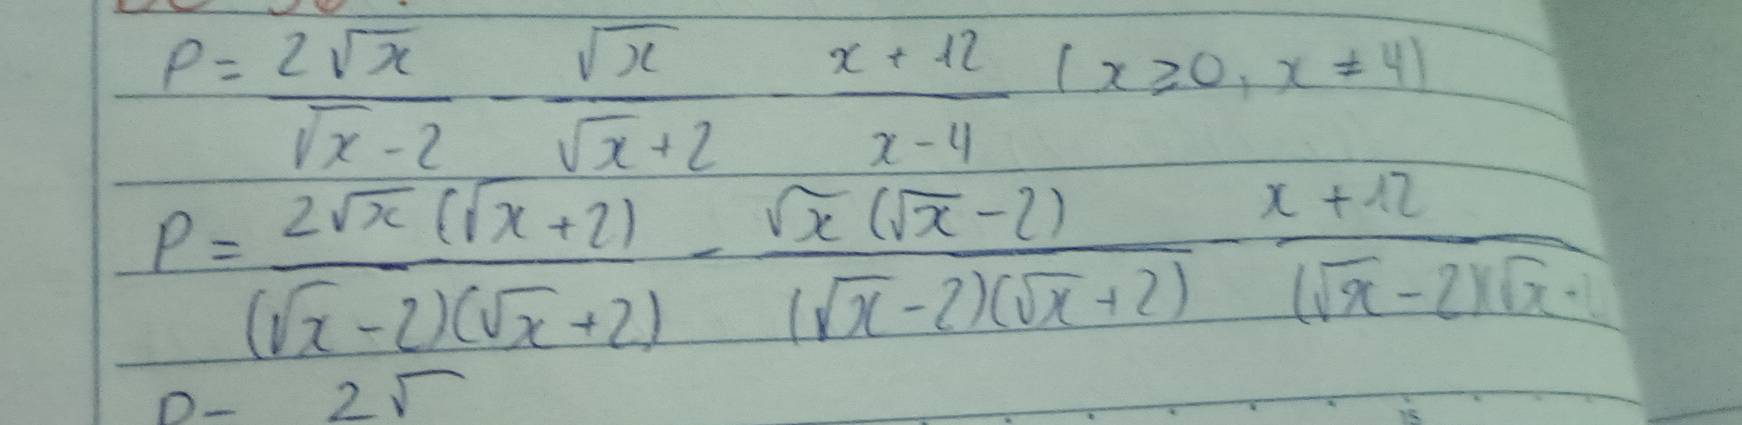 P = 2√x / (√x - 2) - √x / (√x + 2) - (x + 12) / (x - 4) (x ≥ 0, x ≠ 4)
P = 2√x (√x + 2) / (√x - 2)(√x + 2) - √x (√x - 2) / (√x - 2)(√x + 2) - (x + 12) / (√x - 2)(√x
P = 2√